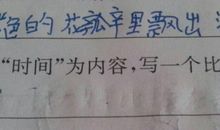 色的花瓢辛里飘出
“时间”为内容,写一个比